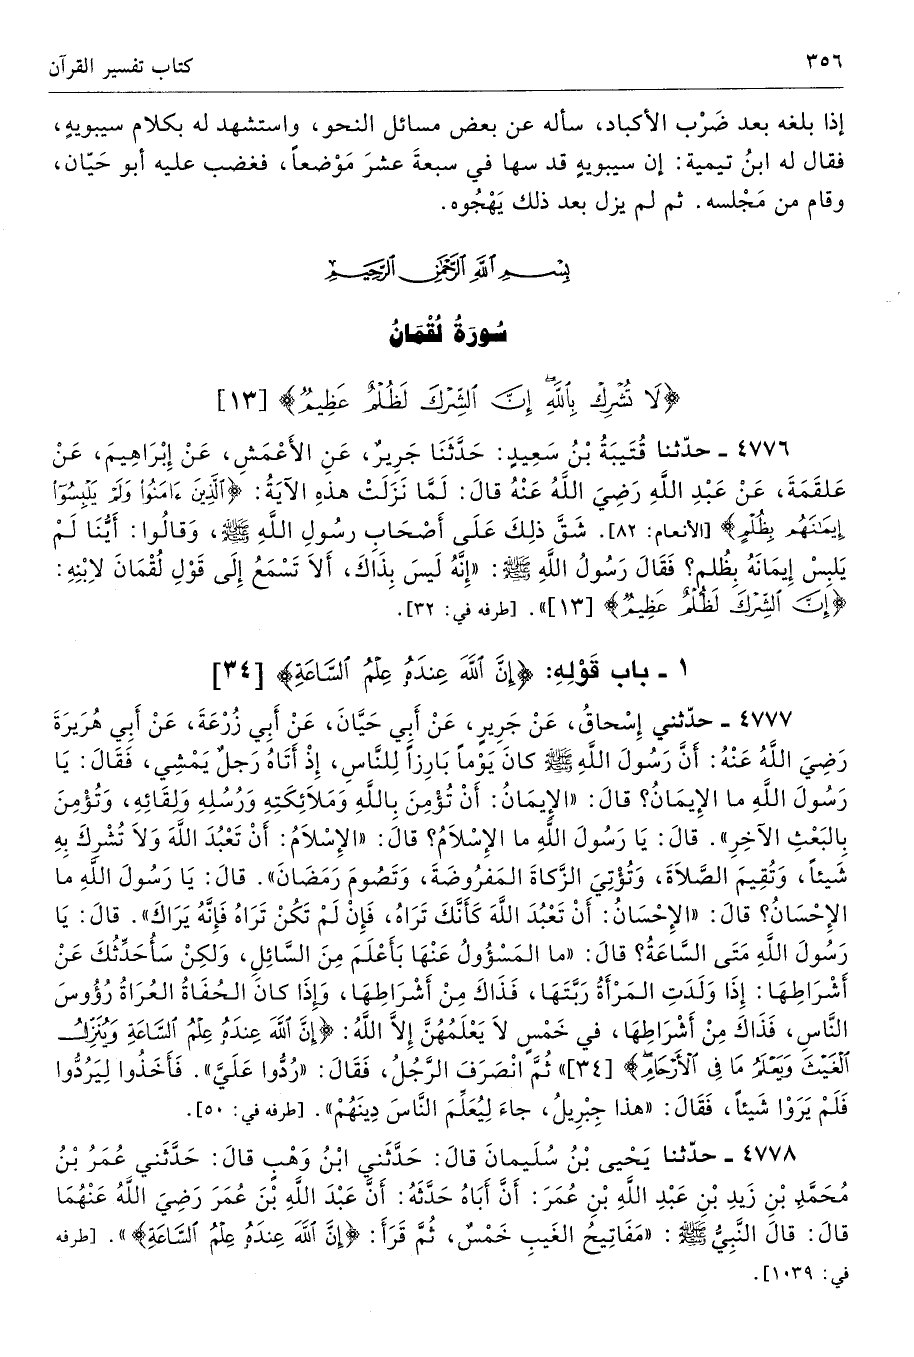 ٣٥٦
كتاب تفسير القرآن
إذا بلغه بعد ضَرْب الأكباد، سأله عن بعض مسائل النحو، واستشهد له بكلام سيبويهِ،
فقال له ابنُ تيمية: إن سيبويهِ قد سها في سبعةَ عشرَ مَوْضعاً، فغضب عليه أبو حَيّان،
وقام من مَجْلسه. ثم لم يزل بعد ذلك يَهْجُوه.
بِسْمِ ٱللَّهِ ٱلرَّحْمَٰنِ ٱلرَّحِيمِ
سُورَةُ لُقْمَانُ
﴿لَا تُشْرِكْ بِٱللَّهِ إِنَّ ٱلشِّرْكَ لَظُلْمٌ عَظِيمٌ﴾ [١٣]
٤٧٧٦ ـ حدّثنا قُتَيبَةُ بْنُ سَعِيدٍ: حَدَّثَنَا جَرِيرٌ، عَنِ الأَعْمَشِ، عَنْ إِبْرَاهِيمَ، عَنْ
عَلقَمَةَ، عَنْ عَبْدِ اللَّهِ رَضِيَ اللَّهُ عَنْهُ قالَ: لَمَّا نَزَلَتْ هذهِ الآيَةُ: ﴿ٱلَّذِينَ ءَامَنُوا۟ وَلَمْ يَلْبِسُوٓا۟
إِيمَٰنَهُم بِظُلْمٍ﴾ [الأنعام: ٨٢]. شَقَّ ذلِكَ عَلَى أَصْحَابِ رسُولِ اللَّهِ ﷺ، وَقَالُوا: أَيُّنَا لَمْ
يَلبِسْ إِيمَانَهُ بِظُلمٍ؟ فَقَالَ رَسُولُ اللَّهِ ﷺ: «إِنَّهُ لَيسَ بِذَاكَ، أَلاَ تَسْمَعُ إِلَى قَوْلِ لُقْمَانَ لاِبْنِهِ:
﴿إِنَّ ٱلشِّرْكَ لَظُلْمٌ عَظِيمٌ﴾ [١٣]». [طرفه في: ٣٢].
١ ـ باب قَوْلِهِ: ﴿إِنَّ ٱللَّهَ عِندَهُۥ عِلْمُ ٱلسَّاعَةِ﴾ [٣٤]
٤٧٧٧ ـ حدّثني إِسْحاقُ، عَنْ جَرِيرٍ، عَنْ أَبِي حَيَّانَ، عَنْ أَبِي زُرْعَةَ، عَنْ أَبِي هُرَيرَةَ
رَضِيَ اللَّهُ عَنْهُ: أَنَّ رَسُولَ اللَّهِ ﷺ كانَ يَوْماً بَارِزاً لِلنَّاسِ، إِذْ أَتَاهُ رَجلٌ يَمْشِي، فَقَالَ: يَا
رَسُولَ اللَّهِ ما الإِيمَانُ؟ قالَ: «الإِيمَانُ: أَنْ تُؤْمِنَ بِاللَّهِ وَمَلاَئِكَتِهِ وَرُسُلِهِ وَلِقَائِهِ، وَتُؤْمِنَ
بِالبَعْثِ الآخِرِ». قالَ: يَا رَسُولَ اللَّهِ ما الإِسْلاَمُ؟ قالَ: «الإِسْلاَمُ: أَنْ تَعْبُدَ اللَّهَ وَلاَ تُشْرِكَ بِهِ
شَيئاً، وَتُقِيمَ الصَّلاَةَ، وَتُؤْتِيَ الزَّكاةَ المَفرُوضَةَ، وَتَصُومَ رَمَضَانَ». قالَ: يَا رَسُولَ اللَّهِ ما
الإِحْسَانُ؟ قالَ: «الإِحْسَانُ: أَنْ تَعْبُدَ اللَّهَ كَأَنَّكَ تَرَاهُ، فَإِنْ لَمْ تَكُنْ تَرَاهُ فَإِنَّهُ يَرَاكَ». قالَ: يَا
رَسُولَ اللَّهِ مَتَى السَّاعَةُ؟ قالَ: «ما المَسْؤُولُ عَنْهَا بِأَعْلَمَ مِنَ السَّائِلِ، وَلكِنْ سَأُحَدِّثُكَ عَنْ
أَشْرَاطِهَا: إِذَا وَلَدَتِ المَرْأَةُ رَبَّتَهَا، فَذَاكَ مِنْ أَشْرَاطِهَا، وَإِذَا كانَ الحُفَاةُ العُرَاةُ رُؤُوسَ
النَّاسِ، فَذَاكَ مِنْ أَشْرَاطِهَا، في خَمْسٍ لاَ يَعْلَمُهُنَّ إِلاَّ اللَّهُ: ﴿إِنَّ ٱللَّهَ عِندَهُۥ عِلْمُ ٱلسَّاعَةِ وَيُنَزِّلُ
ٱلْغَيْثَ وَيَعْلَمُ مَا فِى ٱلْأَرْحَامِ﴾ [٣٤]» ثُمَّ انْصَرَفَ الرَّجُلُ، فَقَالَ: «رُدُّوا عَلَيَّ». فَأَخَذُوا لِيَرُدُّوا
فَلَمْ يَرَوْا شَيئاً، فَقَالَ: «هذا جِبْرِيلُ، جاءَ لِيُعَلِّمَ النَّاسَ دِينَهُمْ». [طرفه في: ٥٠].
٤٧٧٨ ـ حدّثنا يَحْيى بْنُ سُلَيمانَ قالَ: حَدَّثَنِي ابْنُ وَهْبٍ قالَ: حَدَّثَنِي عُمَرُ بْنُ
مُحَمَّدِ بْنِ زَيدِ بْنِ عَبْدِ اللَّهِ بْنِ عُمَرَ: أَنَّ أَبَاهُ حَدَّثَهُ: أَنَّ عَبْدَ اللَّهِ بْنَ عُمَرَ رَضِيَ اللَّهُ عَنْهُمَا
قالَ: قالَ النَّبِيُّ ﷺ: «مَفَاتِيحُ الغَيبِ خَمْسٌ، ثُمَّ قَرَأَ: ﴿إِنَّ ٱللَّهَ عِندَهُۥ عِلْمُ ٱلسَّاعَةِ﴾». [طرفه
في: ١٠٣٩].